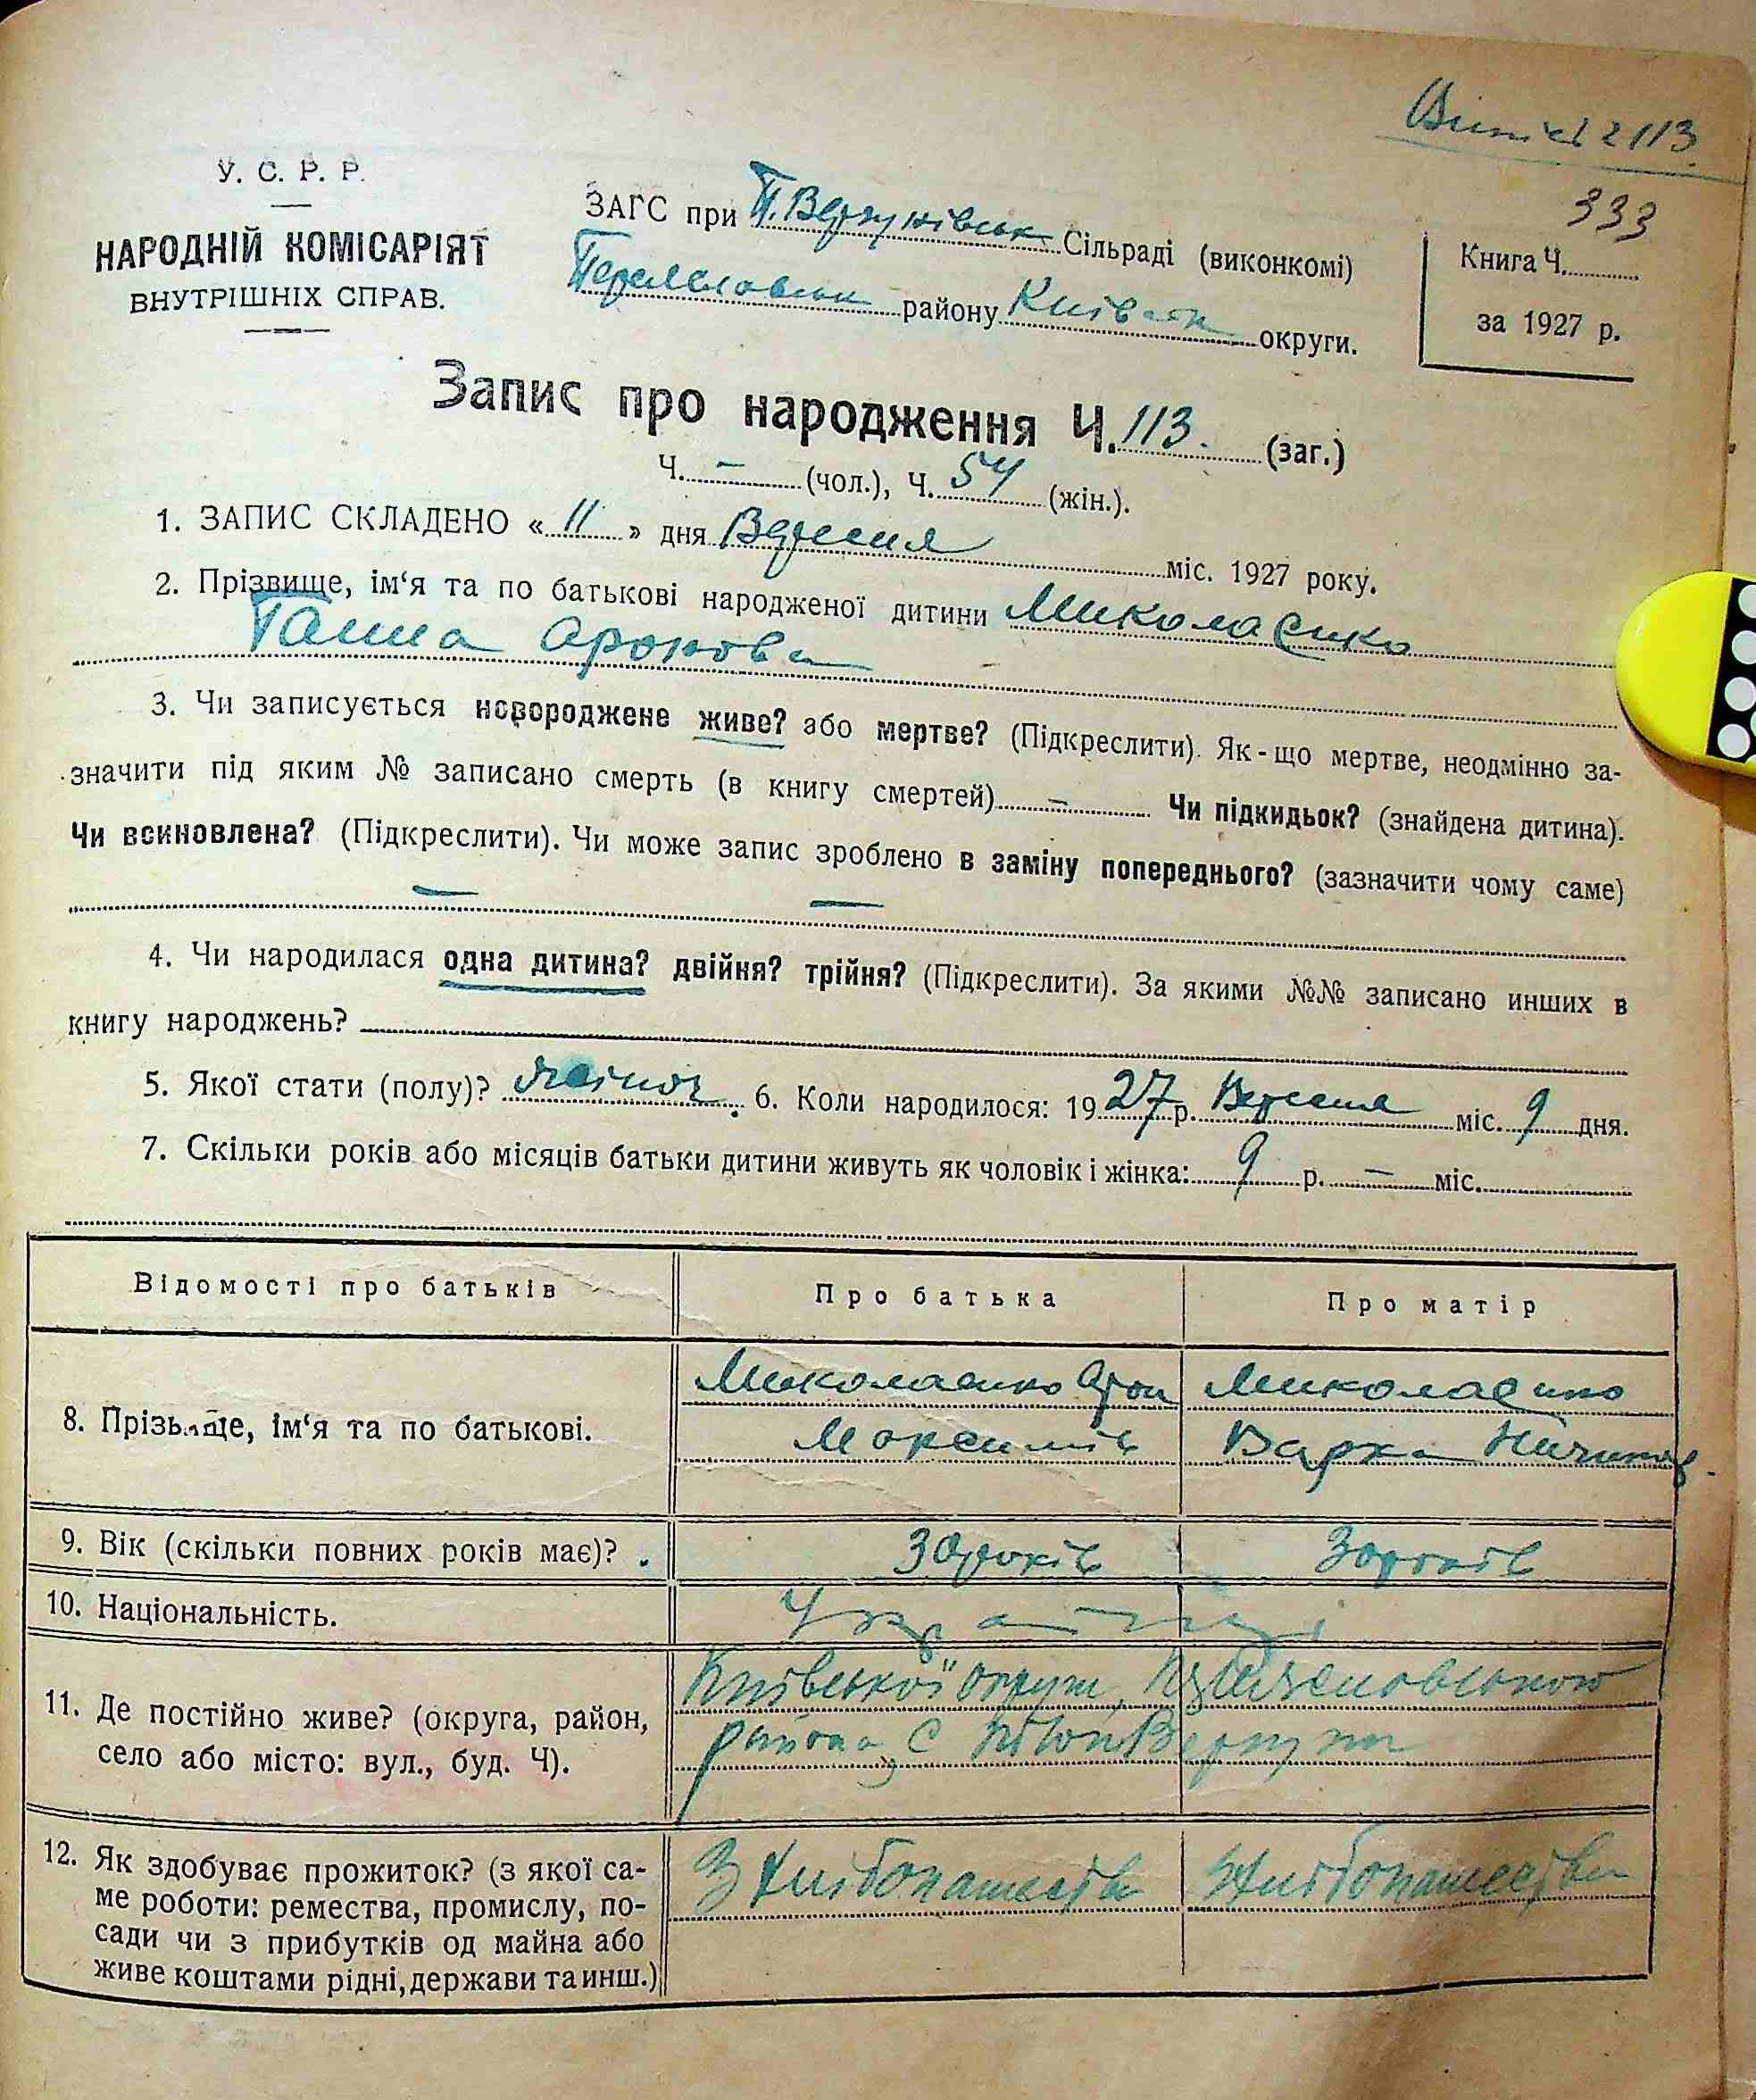 113.
333
У. С. Р. Р.
НАРОДНІЙ КОМІСАРІЯТ
ВНУТРІШНІХ СПРАВ.
ЗАГС при П. Вергунівськ Сільраді (виконкомі)
району Київськ округи.
Книга Ч.
за 1927 р.
Запис про народження Ч. 113. (заг.)
Ч. – (чол.), Ч. 54 (жін.).
1. ЗАПИС СКЛАДЕНО « 11 » дня Вересня міс. 1927 року.
2. Прізвище, ім‘я та по батькові народженої дитини Миколаенко
Ганна Аронова
3. Чи записується новороджене живе? або мертве? (Підкреслити). Як-що мертве, неодмінно за-
значити під яким № записано смерть (в книгу смертей) – Чи підкидьок? (знайдена дитина).
Чи всиновлена? (Підкреслити). Чи може запис зроблено в заміну попереднього? (зазначити чому саме)
— —
4. Чи народилася одна дитина? двійня? трійня? (Підкреслити). За якими №№ записано инших в
книгу народжень?
5. Якої стати (полу)? жіноч. 6. Коли народилося: 1927 р. Вересня міс. 9 дня.
7. Скільки років або місяців батьки дитини живуть як чоловік і жінка: 9 р. – міс.
Відомості про батьків Про батька Про матір
8. Прізвище, ім‘я та по батькові.
Миколаенко Арон
Максимів
Миколаенко
Варка
9. Вік (скільки повних років має)? 30 років 30 років
10. Національність.
Українці
11. Де постійно живе? (округа, район,
село або місто: вул., буд. Ч).
Київської округи,
району с Вергуни
12. Як здобуває прожиток? (з якої са-
ме роботи: ремества, промислу, по-
сади чи з прибутків од майна або
живе коштами рідні, держави та инш.)
З Хлібопашества
З Хлібопашества